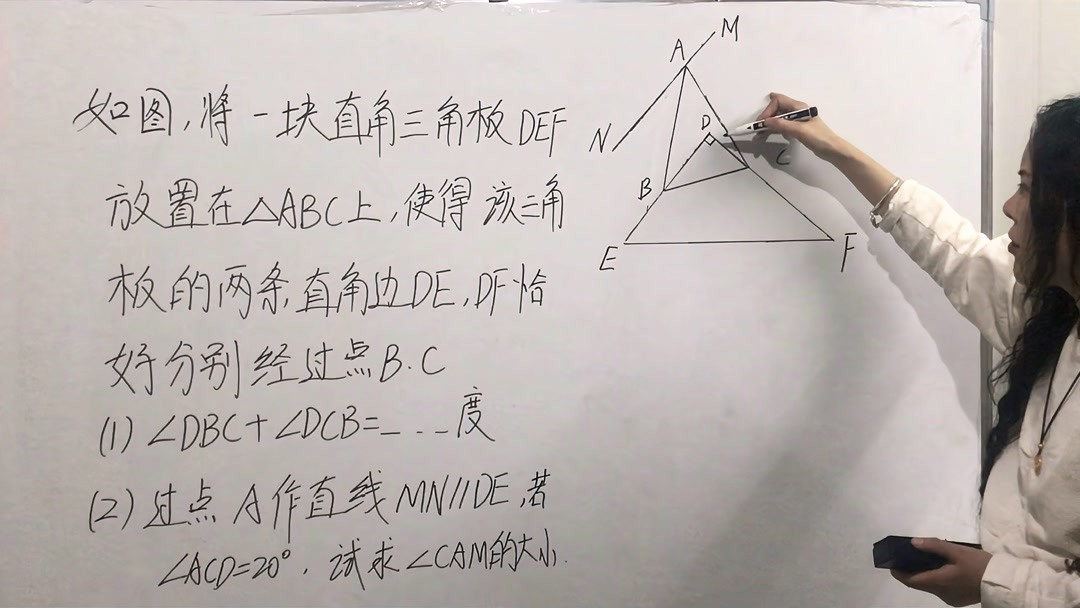 如图,将一块直角三角板DEF
放置在△ABC上,使得该三角
板的两条直角边DE,DF恰
好分别经过点B.C
(1)∠DBC+∠DCB=_ _ _度
(2)过点A作直线MN//DE,若
∠ACD=20°,试求∠CAM的大小.
M
A
D
N
C
B
E
F